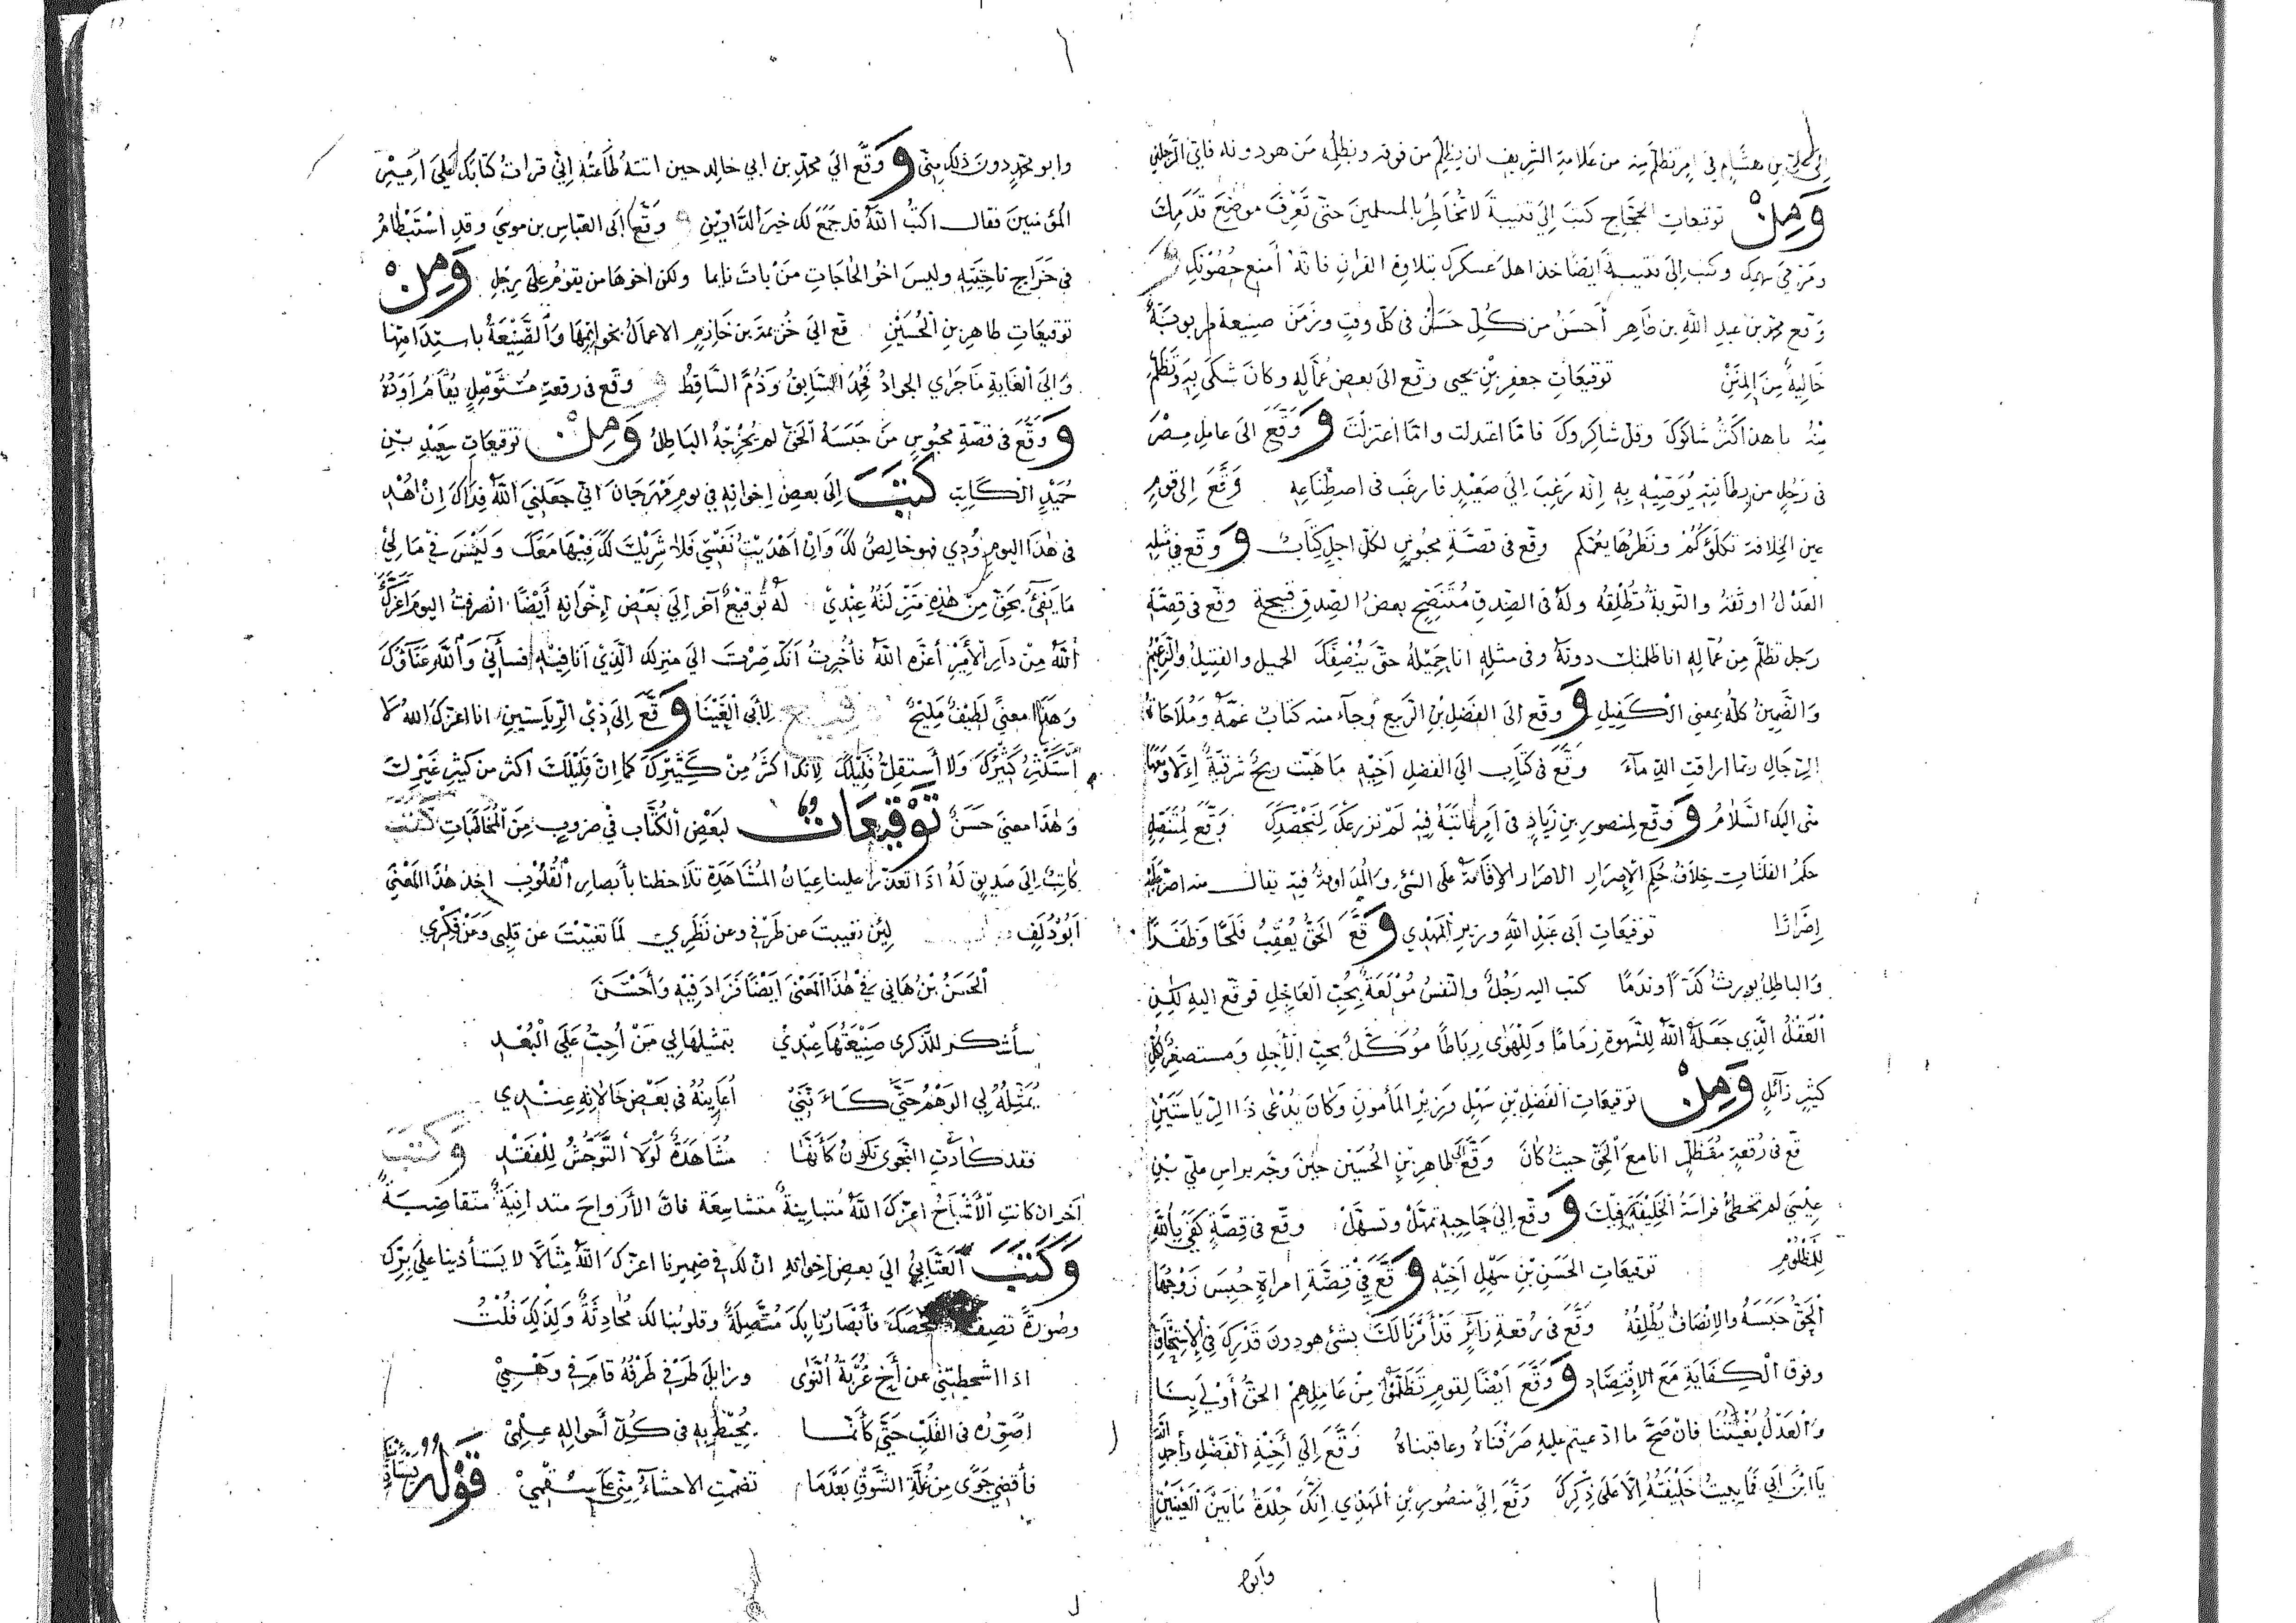 الى علي بن هشام في امر تظلم منه من علامة الشريف ان يظلم من فوقه ويظلمه من هو دونه فاي الرجلين
وَمِنْ توقيعات الحجاج كتب الى قتيبة لا تخاطر بالمسلمين حتى تعرف موضع قدمك
ومرمى سهمك وكتب الى قتيبة ايضا خذ اهل عسكرك بتلاوة القران فانه امنع حصونك
وقع محمد بن عبد الله بن طاهر احسن من كل حسن في كل وقت وزمن صنيعة مربوبة
خالية من المنن توقيعات جعفر بن يحيى وقع الى بعض عماله وكان شكى به وتظلم
منه يا هذا كثر شاكوك وقل شاكروك فاما اعتدلت واما اعتزلت وَوَقَّعَ الى عامل مصر
في رجل من بطانته يوصيه به انه رغب الي صعيد فارغب في اصطناعه وَقَّعَ الى قوم
عين الخلافة تكلؤكم ونظرها يعمكم وقع في قصة محبوس لكل اجل كتاب ووقع في مثله
العدل اوثقه والتوبة تطلقه وله في الصدق متنصح بعض الصدق قبيحة وقع في قصة
رجل تظلم من عماله انا ظلمتك دونه وفي مثله انا حميله حتى ينصفك الحميل والقبيل والزعيم
والضمين كله بمعنى الكفيل وَوقع الى الفضل بن الربيع وجاء منه كتاب غمه وملاحاة
الرجال ربما اراقت الدماء وَقَّعَ في كتاب الى الفضل اخيه ما هبت ريح شرقية الا ومعها
مني اليك السلام وَوَقع لمنصور بن زياد في امر عاتبه فيه لم نزرعك لنحصدك وَقَّعَ لمتنقل
حكم الفلتات خلاف حكم الاصرار الاصرار الاقامة على الشيء والمداومة فيه يقال منه اصر عليه
اصرارا توقيعات ابي عبد الله وزير المهدي وَقَّعَ الحق يعقب فلحا وظفرا
والباطل يورث كذبا وندما كتب اليه رجل والنفس مولعة بحب العاجل فوقع اليه لكن
العقل الذي جعله الله للشهوة زماما وللهوى رباطا موكل بحب الآجل ومستصغر لكل
كثير زائل وَمِنْ توقيعات الفضل بن سهل وزير المأمون وكان يدعى ذا الرياستين
قع في رقعة متظلم انا مع الحق حيث كان وَقَّعَ الى طاهر بن الحسين حين وجه براس علي بن
عيسى لم تخطئ فراسة الخليفة فيك وَوَقع الى حاجبه تمهل وتسهل وقع في قصة كفى بالله
للمظلوم توقيعات الحسن بن سهل اخيه وَقَّعَ في قصة امراة حبس زوجها
الحق حبسه والانصاف يطلقه وَقَّعَ في رقعة زائر قد امرنا لك بشئ هو دون قدرك في الاستحقاق
وفوق الكفاية مع الاقتصاد وَوَقَّعَ ايضا لقوم تظلموا من عاملهم الحق اولى بنا
والعدل بغيتنا فان صح ما ادعيتم عليه صرفناه وعاقبناه وَقَّعَ الى اخيه الفضل واجل الله
يا ابن ابي فما بعيت خليفته الا على ذكرك وَقَّعَ الى منصور بن المهدي انك جلدة ما بين العينين
وابو
وابو محمد دون ذلك مني وَوَقَّعَ الى محمد بن ابي خالد حين اتته طاعته اني قرات كتابك على امير
المؤمنين فقال اكتب الله قد جمع لك خير الدارين وَقَّعَ الى العباس بن موسى وقد استبطاه
في خراج ناحيته وليس اخو الحاجات من بات نايما ولكن اخوها من يقوم على رجل وَمِنْ
توقيعات طاهر بن الحسين قع الى خزيمة بن خازم الاعمال بخواتيمها والصنيعة باستدامتها
والى الغاية ما جرى الجواد فحمد السابق وذم الساقط وقع في رقعة متوصل يقام اوده
وَوَقَّعَ في قصة محبوس من حبسه الحق لم يخرجه الباطل وَمِنْ توقيعات سعيد بن
حميد الكاتب كَتَبَ الى بعض اخوانه في يوم مهرجان اني جعلني الله فداك ان اهد
في هذا اليوم ودي فهو خالص لك وان اهديت نفسي فلا شريك لك فيها معك وليس في مالي
ما يفي بحق من هذه منزلته عندي له توقيع آخر الى بعض اخوانه ايضا انصرفت اليوم اعزك
الله من دار الامير اعزه الله فاخبرت انك صرت الى منزلك الذي انا فيه فساءني والله عناؤك
وهذا معنى لطيف مليح توقيع لابي العينا وَقَّعَ الى ذي الرياستين انا اعزك الله لا
استكثر كثيرك ولا استقل قليلك لانك اكثر من كثيرك كما ان قليلك اكثر من كثير غيرك
وهذا معنى حسن تَوْقِيعَاتٌ لبعض الكتاب في ضروب من المخاطبات كتب
كاتب الى صديق له اذا تعذر علينا عيان المشاهدة تلاحظنا بأبصار القلوب اخذ هذا المعنى
ابو دلف لئن تغيبت عن طرفي وعن نظري لما تغيبت عن قلبي وعن فكري
الحسن بن هاني في هذا المعنى ايضا فزاد فيه واحسن
سأشكر للذكرى صنيعتها عندي بتمثيلها لي من احب على البعد
يمثله لي الوهم حتى كانني اعاينه في بعض حالاته عندي
فقد كادت النجوى تكون كأنها مشاهدة لولا التوحش للفقد وَكَتَبَ
آخر ان كانت الاشباح اعزك الله متباينة متشاسعة فان الارواح متدانية متقاضية
وَكَتَبَ العتابي الى بعض اخوانه ان لك في ضميرنا اعزك الله مثالا لا يستأذننا على برك
وصورة تصف شخصك فأبصارنا بك متصلة وقلوبنا لك محادثة ولذلك قلت
اذا اشحطتني عن أخ غربة النوى وزايل طرفي طرفه قام في وهمي
اصوره في القلب حتى كأنما يحيط به في كل أحواله علمي
فأقضي جوى من غلة الشوق بعدما تضمنت الاحشاء مني على سقمي قَوْلُ